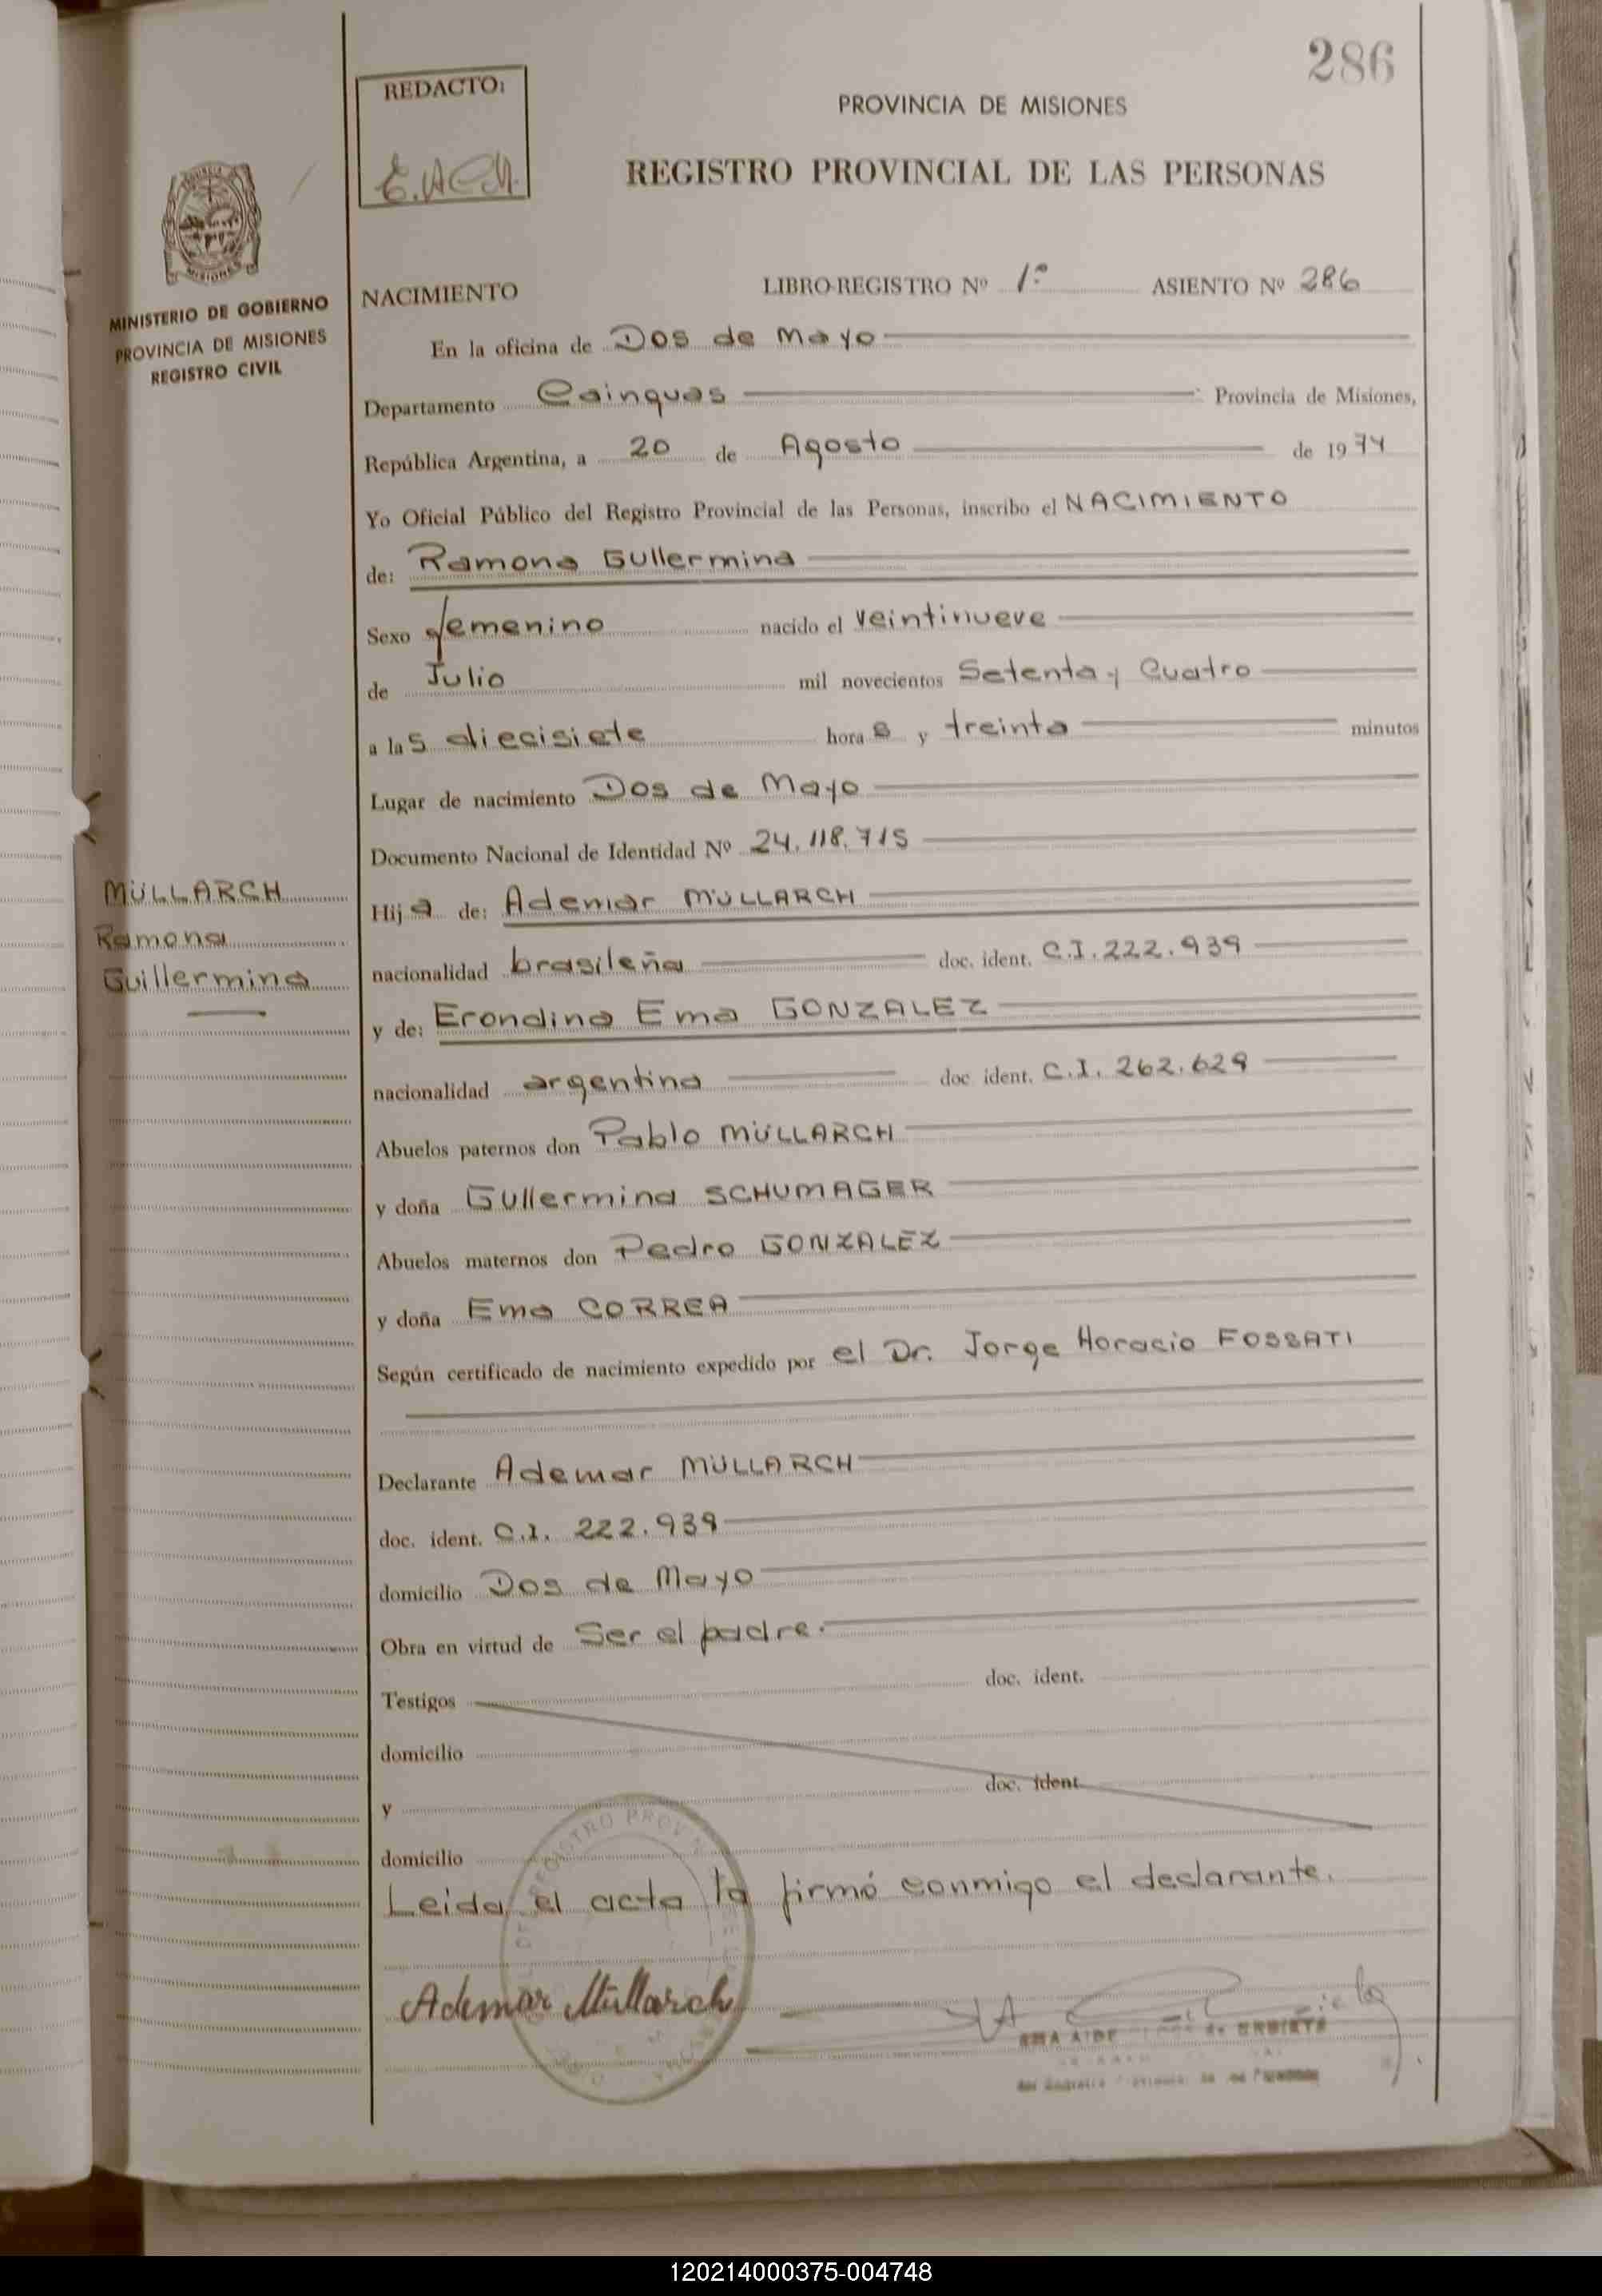 286
REDACTO:
E.A.C.M.
PROVINCIA DE MISIONES
REGISTRO PROVINCIAL DE LAS PERSONAS
MISIONES
MINISTERIO DE GOBIERNO
PROVINCIA DE MISIONES
REGISTRO CIVIL
NACIMIENTO LIBRO-REGISTRO Nº 1º ASIENTO Nº 286
En la oficina de Dos de Mayo
Departamento Cainguas Provincia de Misiones,
República Argentina, a 20 de Agosto de 1974
Yo Oficial Público del Registro Provincial de las Personas, inscribo el NACIMIENTO
de: Ramona Gullermina
Sexo femenino nacido el veintinueve
de Julio mil novecientos Setenta y Cuatro
a las diecisiete horas y treinta minutos
Lugar de nacimiento Dos de Mayo
Documento Nacional de Identidad Nº 24.118.715
MÜLLARCH
Ramona
Guillermina
Hija de: Ademar MÜLLARCH
nacionalidad brasileña doc. ident. C.I. 222.939
y de: Erondina Ema GONZALEZ
nacionalidad argentina doc ident. C.I. 262.629
Abuelos paternos don Pablo MÜLLARCH
y doña Gullermina SCHUMAGER
Abuelos maternos don Pedro GONZALEZ
y doña Ema CORREA
Según certificado de nacimiento expedido por el Dr. Jorge Horacio FOSSATI
Declarante Ademar MÜLLARCH
doc. ident. C.I. 222.939
domicilio Dos de Mayo
Obra en virtud de Ser el padre.
Testigos doc. ident.
domicilio
y doc. ident.
domicilio
Leida el acta la firmó conmigo el declarante.
Ademar Müllarch
120214000375-004748